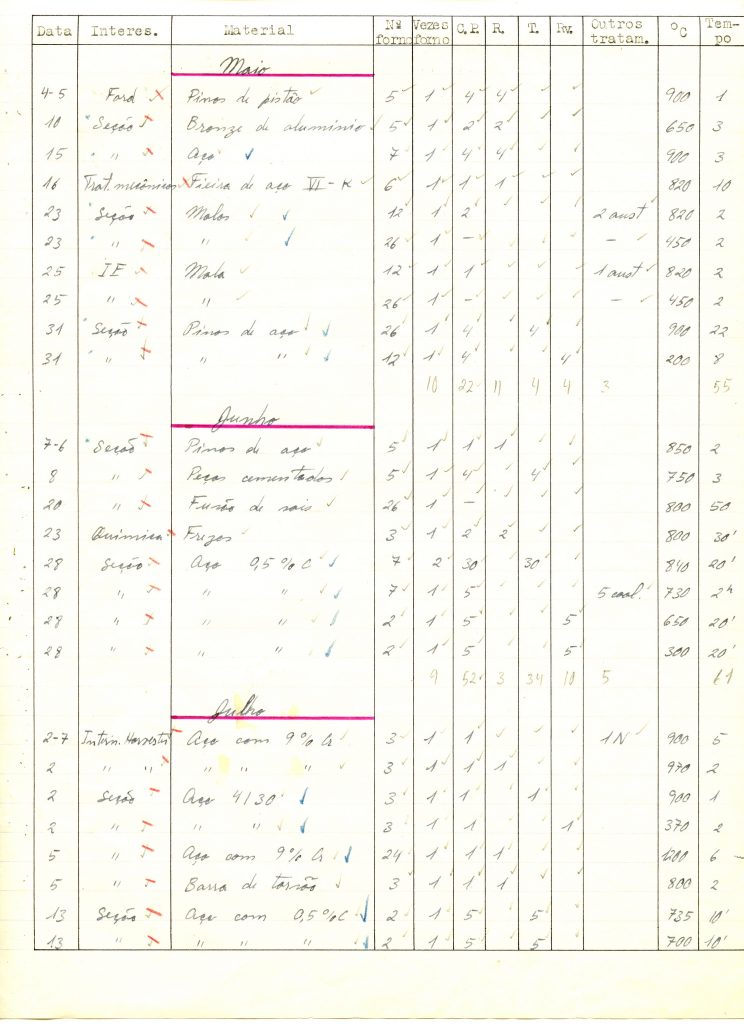 Data Interes. Material Nº forno Vezes forno C.P. R. T. Rv. Outros tratam. ºC Tempo
Maio
4-5 Ford Pinos de pistão 5 1 4 4 900 1
10 Seção Bronze de aluminio 5 1 2 2 650 3
15 " Aço 7 1 4 4 900 3
16 Trat. mecânicos Fieira de aço VI-K 6 1 1 1 820 10
23 Seção Molas 12 1 2 2 aust 820 2
23 " " 26 1 - - 450 2
25 IE Mola 12 1 1 1 aust 820 2
25 " " 26 1 - - 450 2
31 Seção Pinos de aço 26 1 4 4 900 22
31 " " " 12 1 4 4 200 8
10 22 11 4 4 3 55
Junho
7-6 Seção Pinos de aço 5 1 1 1 850 2
8 " Peças cementadas 5 1 4 4 750 3
20 " Fusão de sais 26 1 - 800 50
23 Química Frezas 3 1 2 2 800 30'
28 Seção Aço 0,5% C 7 2 30 30 840 20'
28 " " " 7 1 5 5 coal. 730 2h
28 " " " 2 1 5 5 650 20'
28 " " " 2 1 5 5 300 20'
9 52 3 34 10 5 61
Julho
2-7 Intern. Harvester Aço com 9% Cr 3 1 1 1N 900 5
2 " " " " " 3 1 1 1 970 2
2 Seção Aço 4130 3 1 1 1 900 1
2 " " " 3 1 1 1 370 2
5 " Aço com 9% Cr 24 1 1 1 1200 6
5 " Barra de torsão 3 1 1 1 800 2
13 Seção Aço com 0,5% C 2 1 5 5 735 10'
13 " " " " 2 1 5 5 700 10'